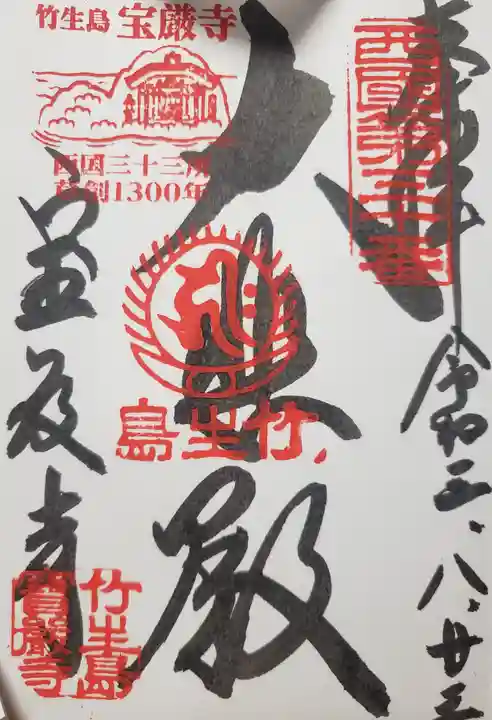 奉拝
西國第三十番
令和三、八、廿三
大悲殿
竹生島
竹生島 宝厳寺
西国三十三所
草創1300年
宝厳寺
竹生島
寶嚴寺